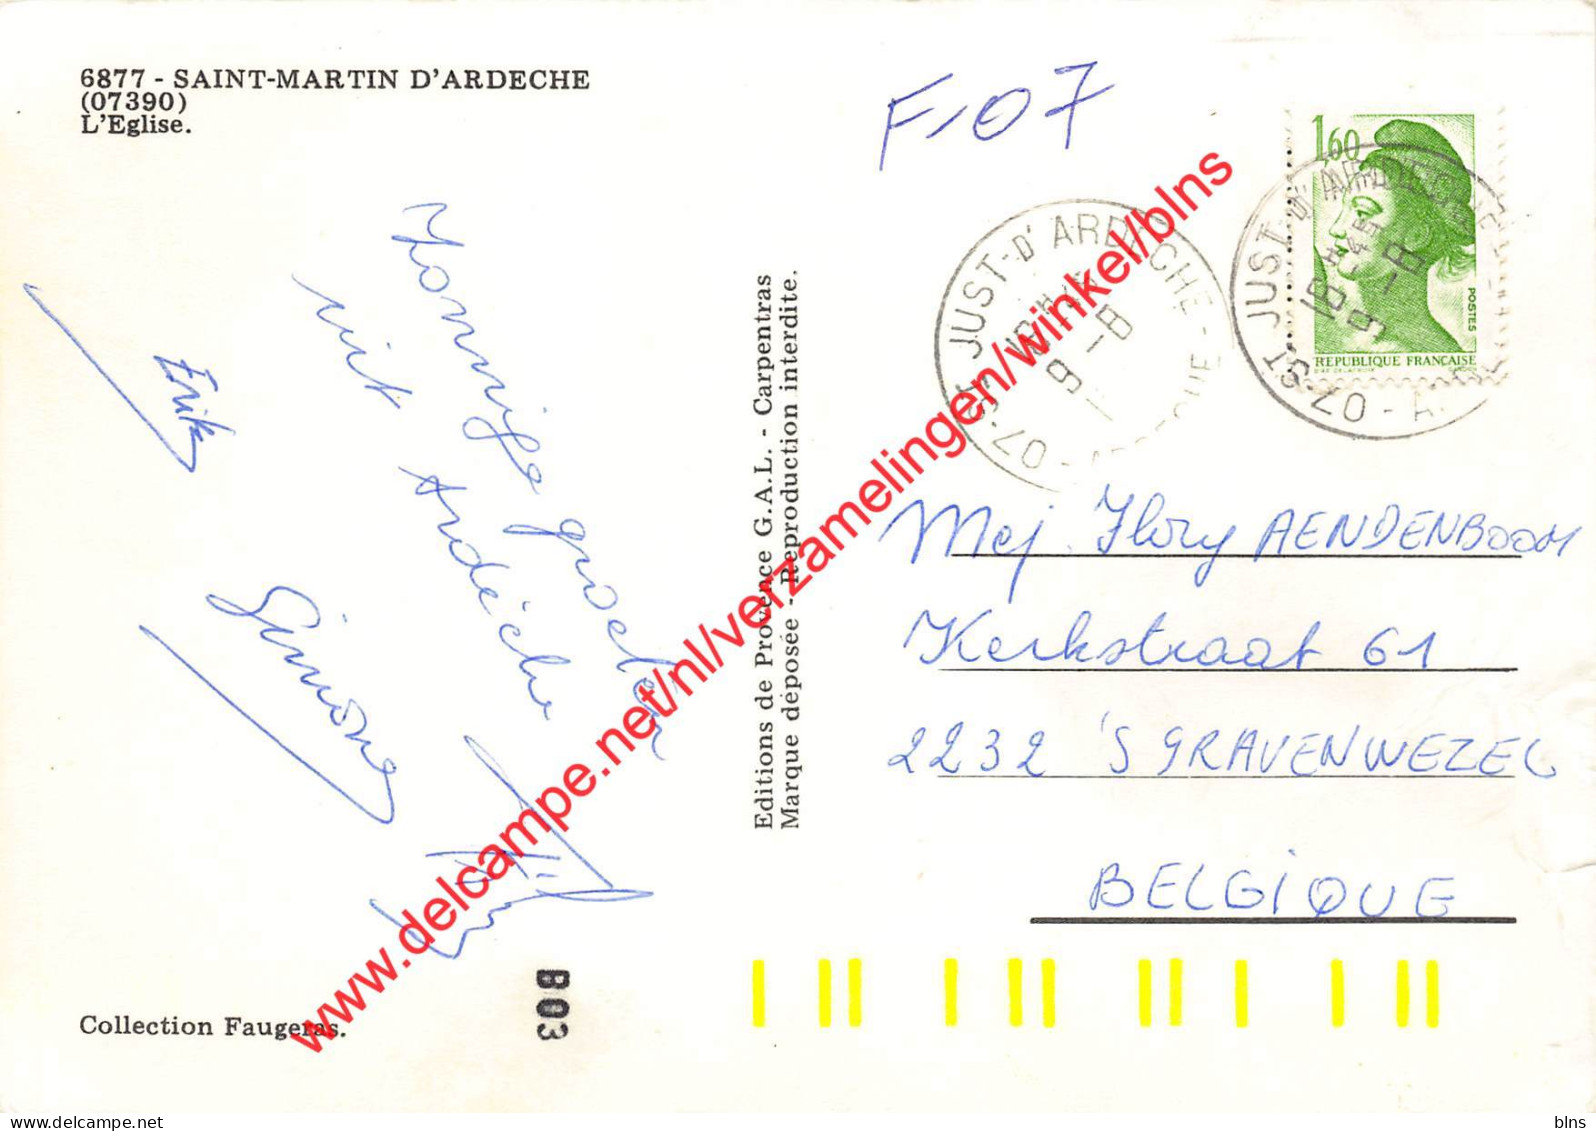 6877 - SAINT-MARTIN D'ARDECHE
(07390)
L'Eglise.
F-07
1,60
POSTES
REPUBLIQUE FRANÇAISE
07-ST JUST-D'ARDECHE - ARDECHE
18H
9-8
07-ST JUST-D'ARDECHE
18H
9-8
Zonnige groeten
uit Ardèche
Erik
Simone
Editions de Provence G.A.L. - Carpentras
Marque déposée - Reproduction interdite.
Mej. Flory AENDENBOOM
Kerkstraat 61
2232 'S GRAVENWEZEL
BELGIQUE
B03
Collection Faugeras.
www.delcampe.net/nl/verzamelingen/winkel/blns
blns